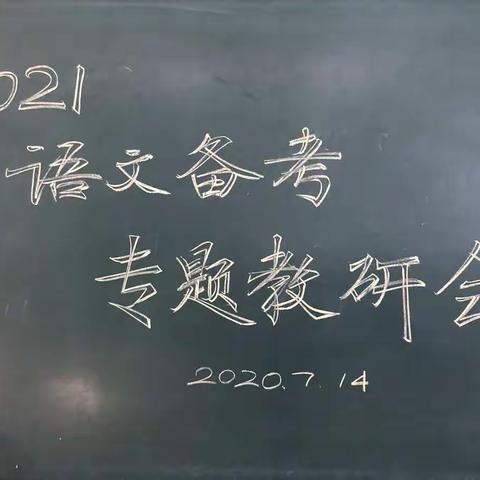 021
语文备考
专题教研会
2020.7.14